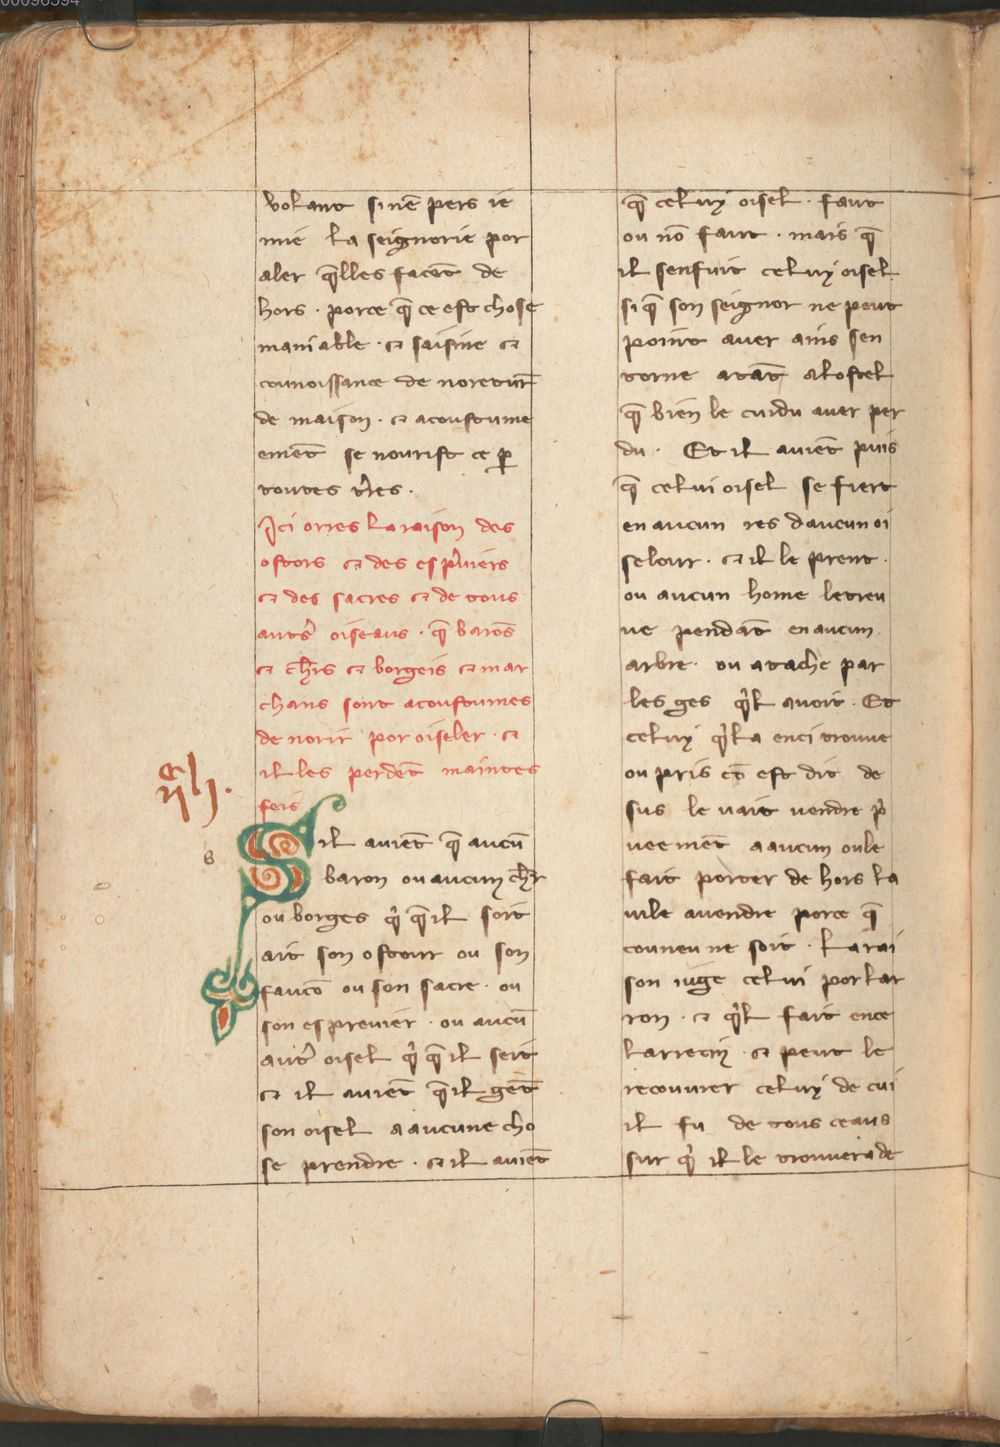 volant si nē pers ie
mie la seignorie por
aler q̄lles facēt de
hors · porce q̄ ce est chose
maniable · ⁊ saisine ⁊
counoissance de noretur̄
de maison · ⁊ acoustume
emēt se nourist ce ꝑ
toutes tr̄es ·
Ici orres la raison des
ostors ⁊ des esp̄uiers
⁊ des sacres ⁊ de tous
autr̄s oiseaus · q̄ barōs
⁊ ch̄rs ⁊ borgeis ⁊ mar
chans sont acoustumes
de norir por oiseler · ⁊
il les perdēt maintes
feis
Sil auiēt q̄ aucū
baron ou aucun ch̄r
ou borges qͥ q̄ il soit
ait son ostour ou son
faucō ou son sacre · ou
son espreuier · ou aucū
autr̄ oisel qͥ q̄ il seit
⁊ il auiēt q̄ il gēt
son oisel a aucune cho
se prendre · ⁊ il auiēt
q̄ celuy oisel · faut
ou nō faut · mais q̄
il senfuit celuy oisel
si q̄ son seignor ne peut
point auer ains sen
torne atāt alostel
q̄ bien le cuidu auer per
du · Et il auiēt puis
q̄ celui oisel se fiert
en aucun res daucun oi
selour · ⁊ il le prent ·
ou aucun home letreu
ue pendāt en aucun
arbre · ou atache par
les ges qͥl auoit · Et
celuy qͥl a enci trouue
ou pris cō est dit de
sus le vait uendre pͥ
ueemēt a aucun oule
fait porter de hors la
uile auendre porce q̄
couneu ne soit · La rai
son iuge celui por lar
ron · ⁊ qͥl fait ence
larrecin · ⁊ peut le
recouurer celuy de cui
il fu de tous ceaus
sur qͥ il le trouuera de